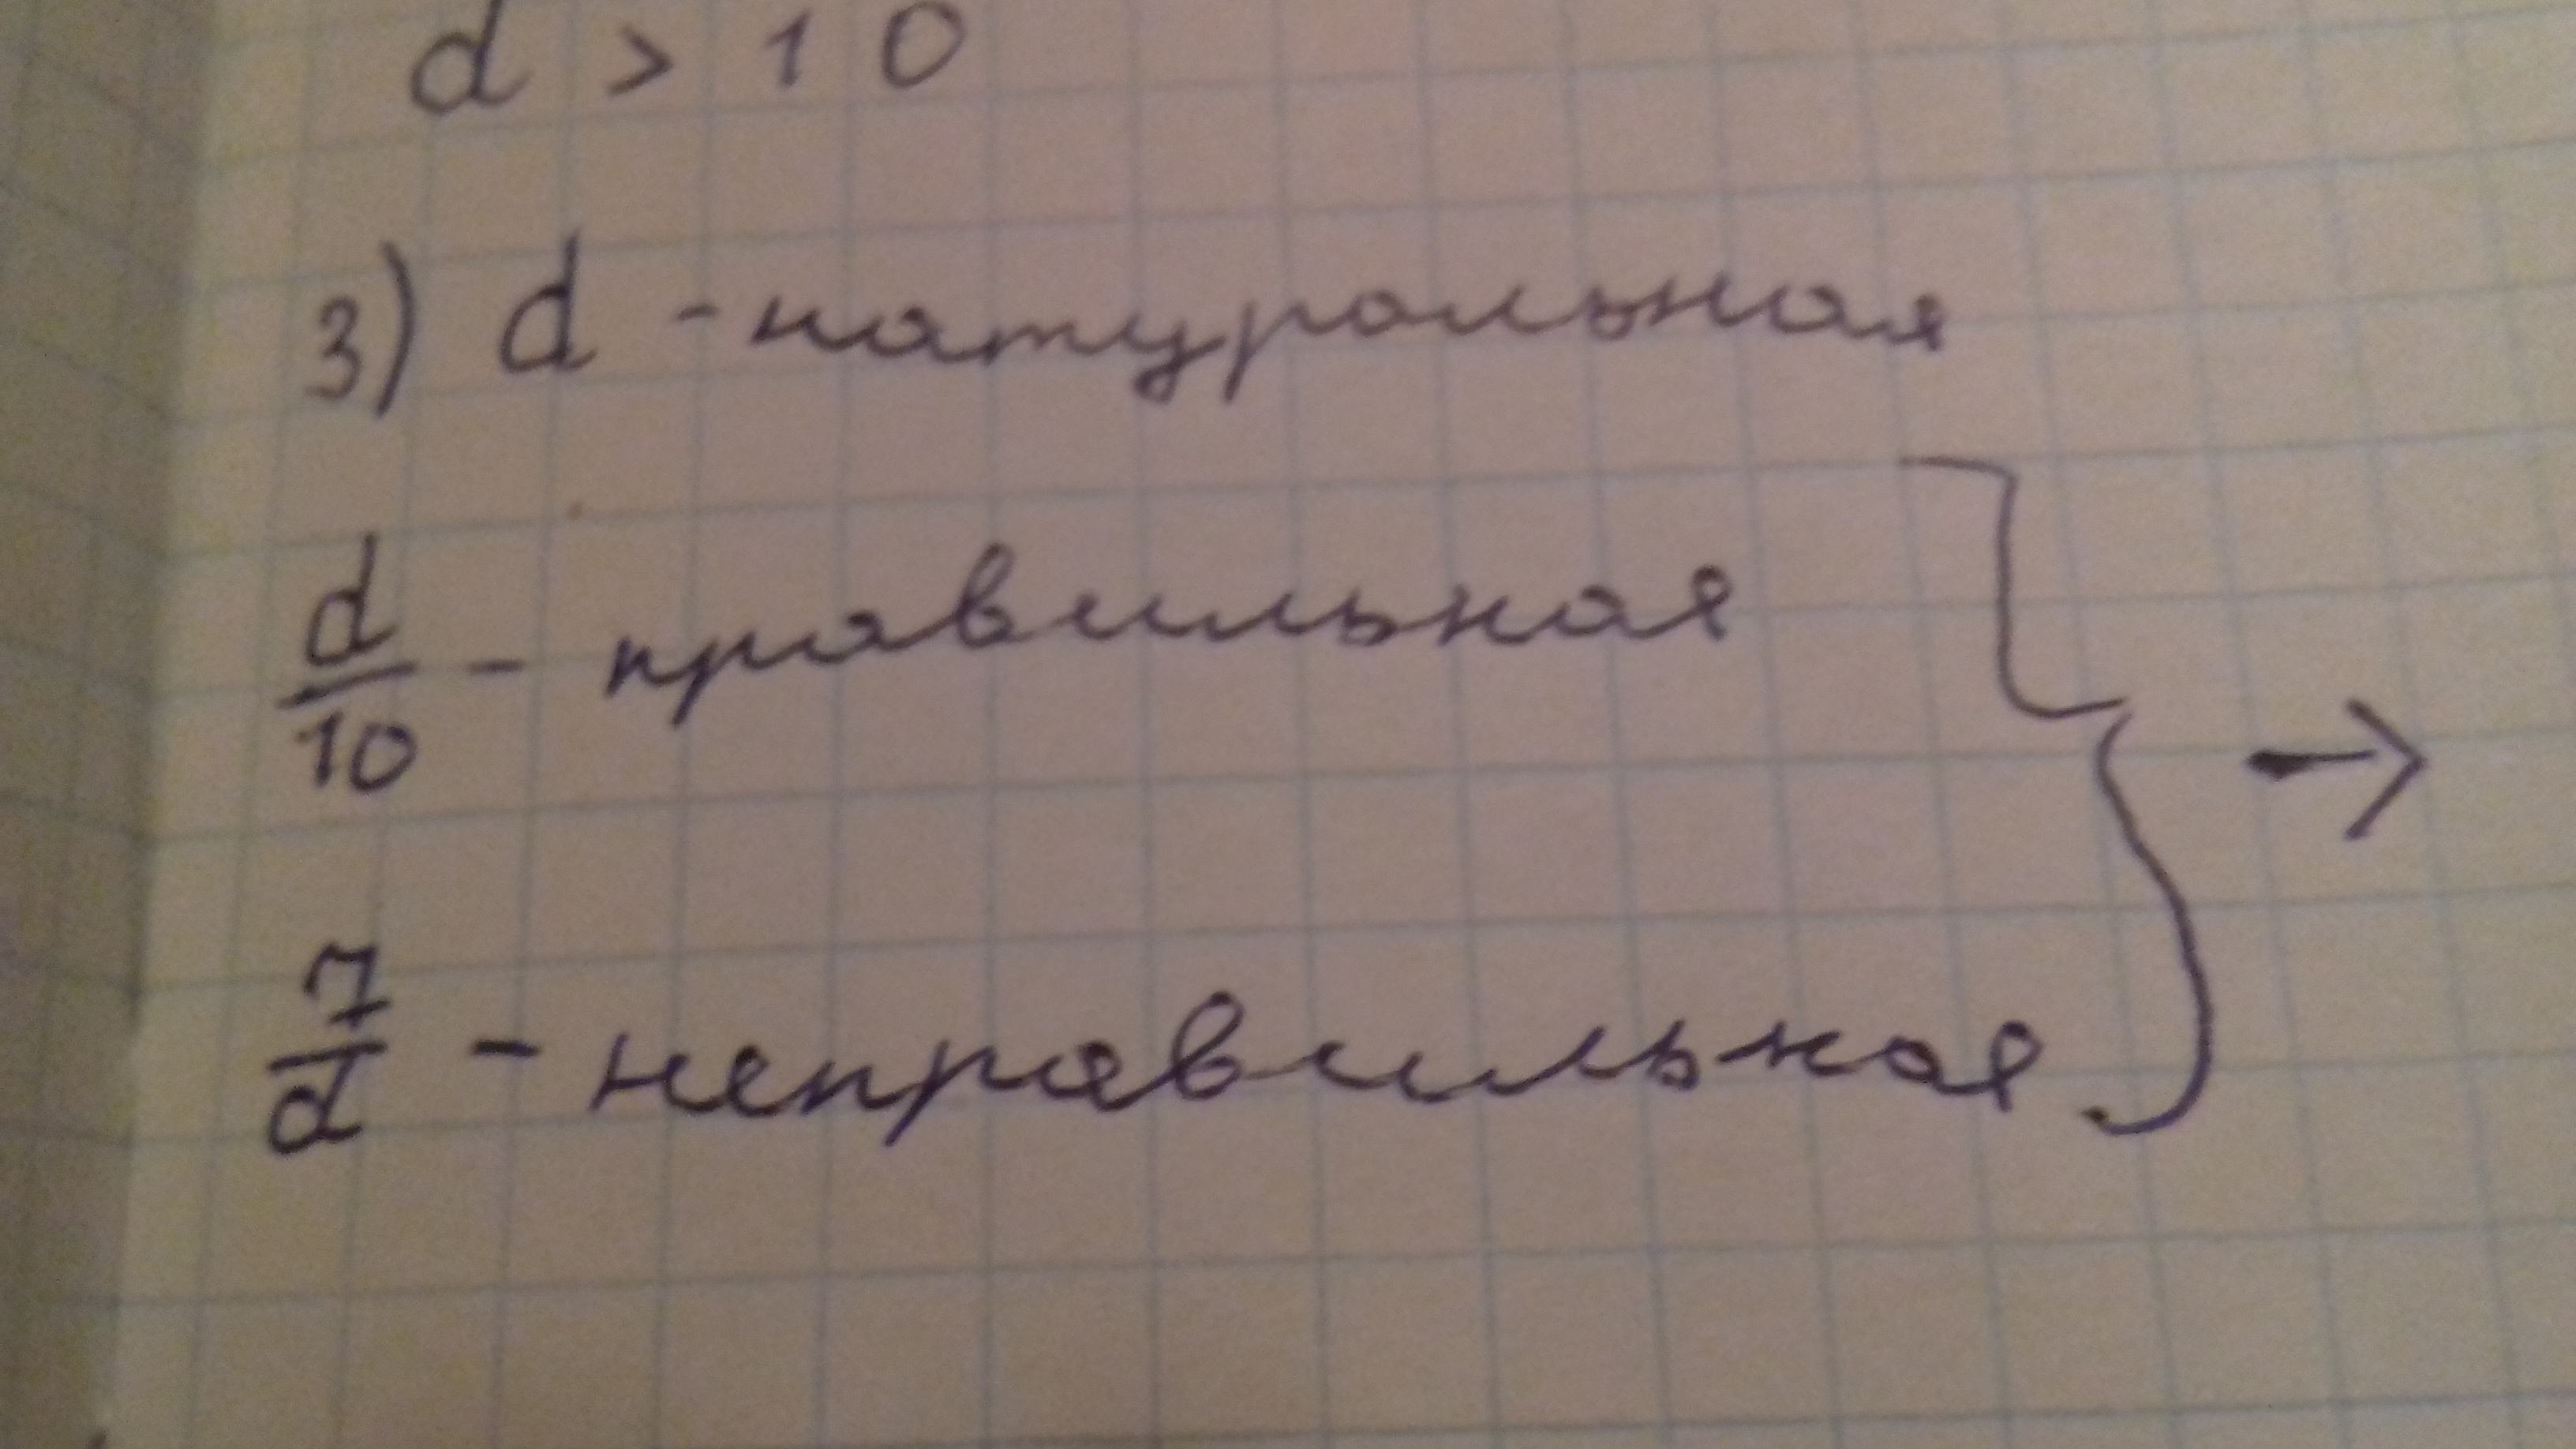 d > 10
3) d - натуральная
d/10 - правильная
→
7/d - неправильная